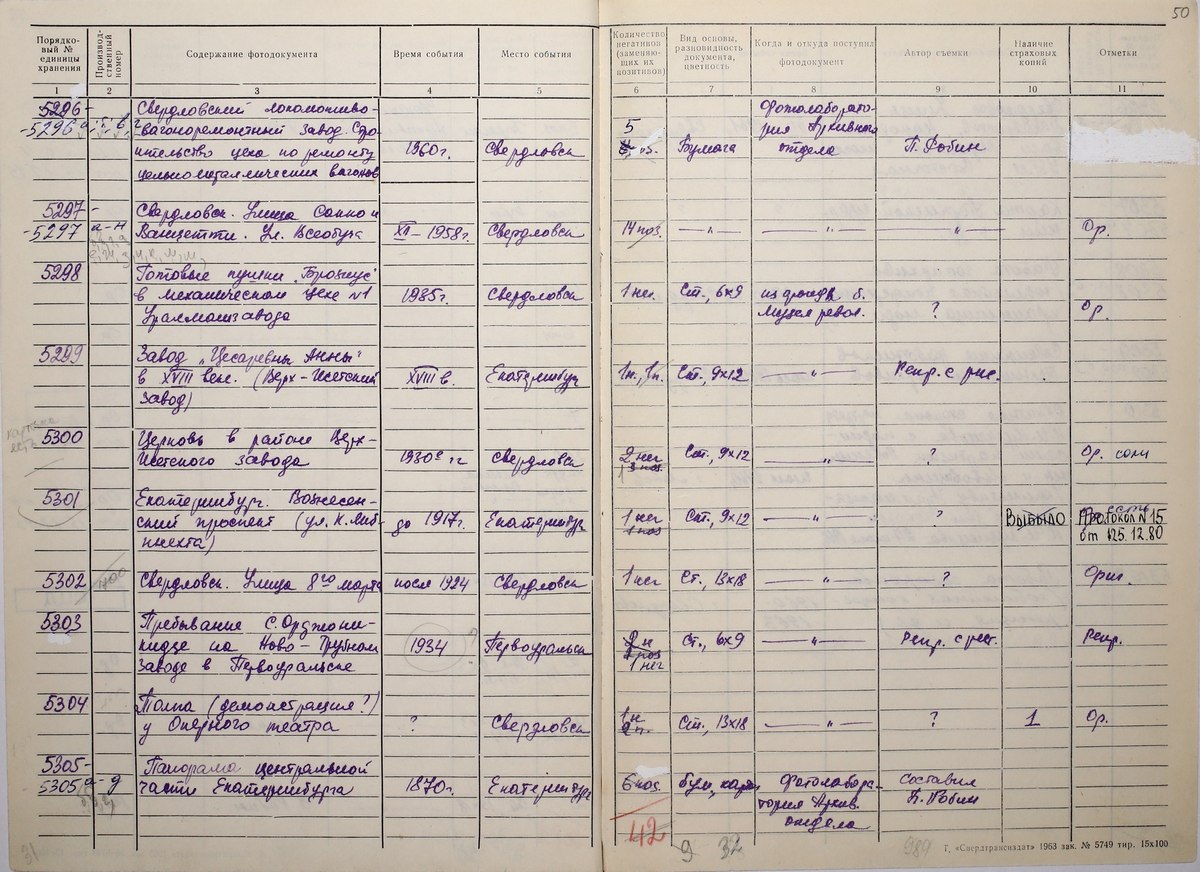 50
Порядко-
вый №
единицы
хранения
Производ-
ственный
номер
Содержание фотодокумента
Время события
Место события
Количество
негативов
(заменяю-
щих их
позитивов)
Вид основы,
разновидность
документа,
цветность
Когда и откуда поступил
фотодокумент
Автор съемки
Наличие
страховых
копий
Отметки
1 2 3 4 5 6 7 8 9 10 11
5296- Свердловский локомотиво- Фотолаборато-
-5296 а, б, в, г вагоноремонтный завод. Стро- 5 рия Архивного
ительство цеха по ремонту 1960г. Свердловск Бумага отдела П. Робин
цельнометаллических вагонов
5297 - Свердловск. Улица Сакко и
-5297 а-н Ванцетти. Ул. Всеобуча XII - 1958г. Свердловск 14 поз. —„— —„— „ Ор.
5298 Готовые пушки "Брозиус"
в механическом цехе №1 1985г. Свердловск 1 нег. Ст., 6х9 из фонда б.
Уралмашзавода Музея револ. ? Ор.
5299 Завод „Цесаревны Анны"
в XVIII веке. (Верх-Исетский XVIII в. Екатеринбург 1н., 1п. Ст., 9х12 —„— Репр. с рис.
завод)
5300 Церковь в районе Верх-
Исетского завода 1930е гг Свердловск 2 нег Ст., 9х12 —„— ? Ор.
3 поз.
5301 Екатеринбург. Вознесен-
ский проспект (ул. К. Либ- до 1917г. Екатеринбург 1 нег Ст., 9х12 —„— ? Выбыло Протокол N 15
кнехта) 1 поз от 25 12.80
5302 Свердловск. Улица 8го марта после 1924 Свердловск 1 нег Ст. 13х18 —„— —? Ориг.
5303 Пребывание С. Орджони-
кидзе на Ново-Трубном 1934 ? Первоуральск 2 н Ст., 6х9 —„— Репр. с рис. Репр.
заводе в Первоуральске 1 нег
5304 Толпа (демонстрация?)
у Оперного театра ? Свердловск 1 н Ст., 13х18 —„— ? 1 Ор.
2 п.
5305- Панорама центральной
5305 а-д части Екатеринбурга 1870г. Екатеринбург 6 поз. бум, карт Фотолабора- составил
тория Архив. П. Робин
отдела
42
9 32
989
31
Г. «Свердтрансиздат» 1963 зак. № 5749 тир. 15х100